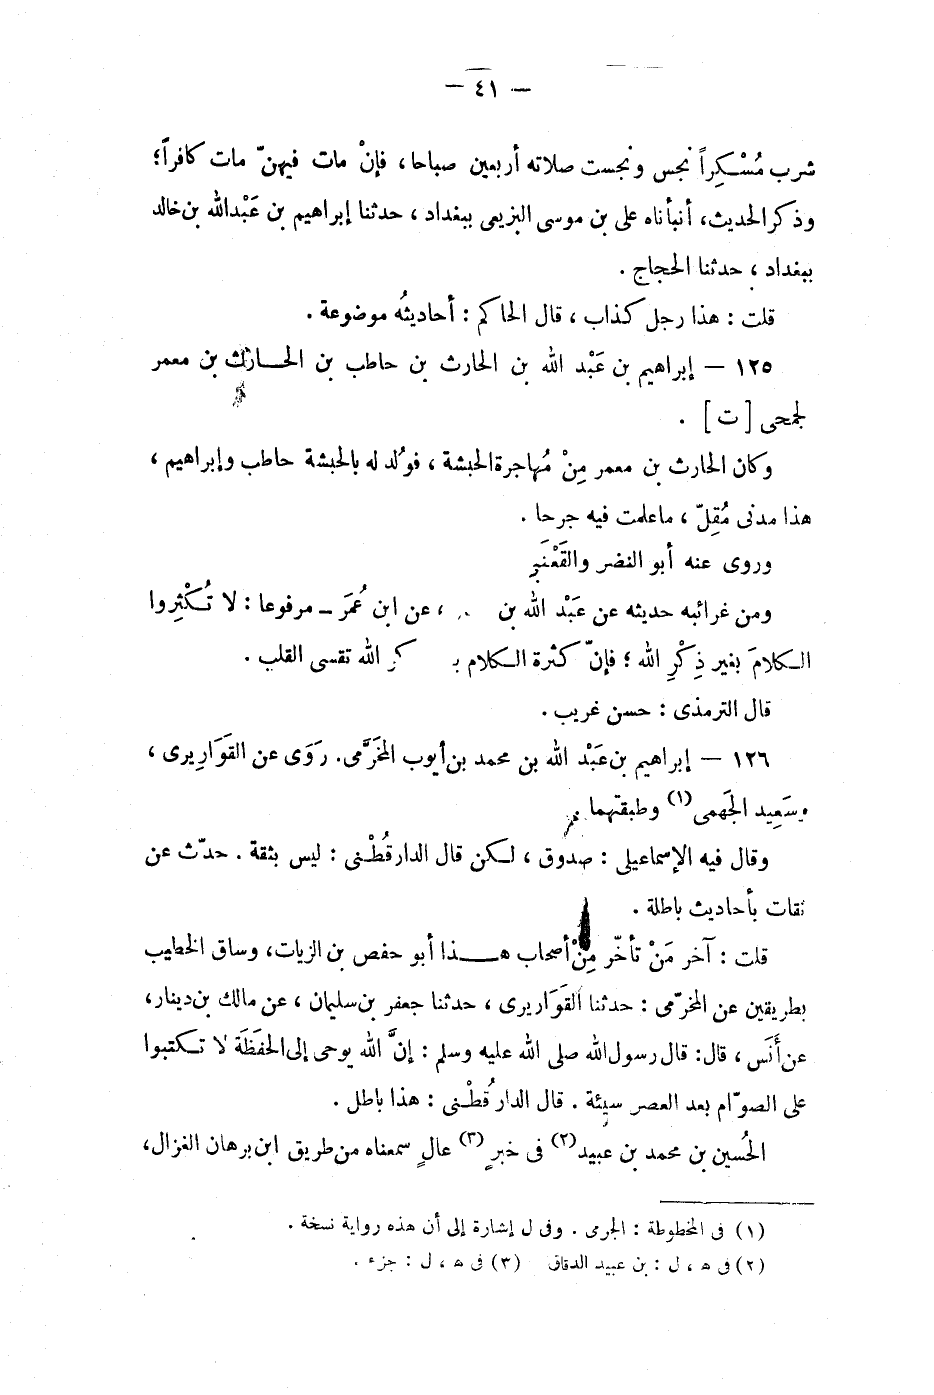 — ٤١ —
شرب مُسْكِراً نجس ونجست صلاته أربعين صباحا، فإنْ مات فيهنّ مات كافراً؛
وذكر الحديث، أنبأناه على بن موسى البزيعى ببغداد، حدثنا إبراهيم بن عَبْد الله بن خالد
ببغداد، حدثنا الحجاج.
قلت: هذا رجل كذاب، قال الحاكم: أحاديثُه موضوعة.
١٢٥ — إبراهيم بن عَبْد الله بن الحارث بن حاطب بن الحارث بن معمر
لجمحى [ت].
وكان الحارث بن معمر مِنْ مُهاجرة الحبشة، فوُلد له بالحبشة حاطب وإبراهيم،
هذا مدنى مُقِلّ، ما علمت فيه جرحا.
وروى عنه أبو النضر والقَعْنَبِ
ومن غرائبه حديثه عن عَبْد الله بن ، عن ابن عُمَر – مرفوعا: لا تُكْثِروا
الكلامَ بغير ذِكْرِ الله؛ فإنّ كثرة الكلام بـ كر الله تقسى القلب.
قال الترمذى: حسن غريب.
١٢٦ — إبراهيم بن عَبْد الله بن محمد بن أيوب المخَرِّمى. رَوَى عن القَوَارِيرى،
وسَعِيد الجَهمى (١) وطبقتهما
وقال فيه الإسماعيلى: صدوق، لكن قال الدارقُطْنى: ليس بثقة. حدّث عن
ثقات بأحاديث باطلة.
قلت: آخر مَنْ تأخّر مِنْ أصحاب هذا أبو حفص بن الزيات، وساق الخطيب
بطريقين عن المخرّمى: حدثنا القَوَاريرى، حدثنا جعفر بن سليمان، عن مالك بن دينار،
عن أَنَس، قال: قال رسول الله صلى الله عليه وسلم: إنَّ الله يوحى إلى الحفَظَة لا تكتبوا
على الصوّام بعد العصر سيئة. قال الدارقُطْنى: هذا باطل.
الحُسين بن محمد بن عبيد (٢) فى خبرٍ (٣) عالٍ سمعناه من طريق ابن برهان الغزال،
(١) فى المخطوطة: الجرمى. وفى ل إشارة إلى أن هذه رواية نسخة.
(٢) فى ه، ل: بن عبيد الدقاق (٣) فى ه، ل: جزء.